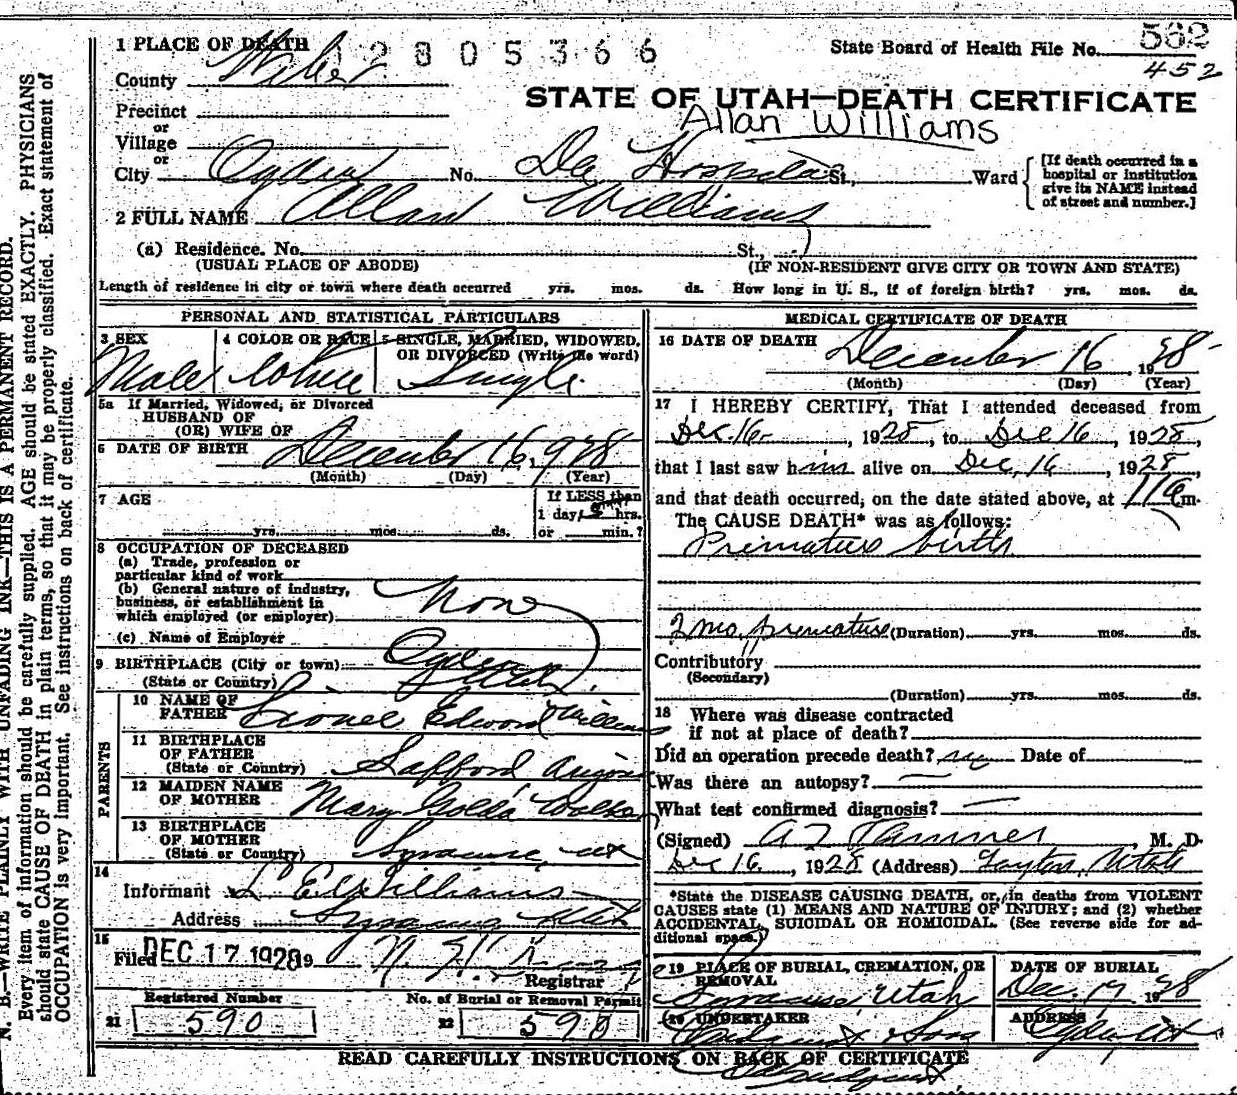 N. B.—WRITE PLAINLY WITH UNFADING INK—THIS IS A PERMANENT RECORD.
Every item of information should be carefully supplied. AGE should be stated EXACTLY. PHYSICIANS
should state CAUSE OF DEATH in plain terms, so that it may be properly classified. Exact statement of
OCCUPATION is very important. See instructions on back of certificate.
1 PLACE OF DEATH
12805366
State Board of Health File No. 562
452
County Weber
STATE OF UTAH—DEATH CERTIFICATE
Allan Williams
Precinct
or
Village
or
City Ogden No. Dee Hospital St., Ward
[If death occurred in a
hospital or institution
give its NAME instead
of street and number.]
2 FULL NAME Allan Williams
(a) Residence. No. St.,
(USUAL PLACE OF ABODE) (IF NON-RESIDENT GIVE CITY OR TOWN AND STATE)
Length of residence in city or town where death occurred yrs. mos. ds. How long in U. S., if of foreign birth? yrs. mos. ds.
PERSONAL AND STATISTICAL PARTICULARS
3 SEX Male
4 COLOR OR RACE White
5 SINGLE, MARRIED, WIDOWED,
OR DIVORCED (Write the word)
Single
5a If Married, Widowed, or Divorced
HUSBAND OF
(OR) WIFE OF
6 DATE OF BIRTH December 16, 1928
(Month) (Day) (Year)
7 AGE
yrs. mos. ds.
If LESS than
1 day, hrs.
or min.?
8 OCCUPATION OF DECEASED
(a) Trade, profession or
particular kind of work
(b) General nature of industry,
business, or establishment in
which employed (or employer)
None
(c) Name of Employer
9 BIRTHPLACE (City or town) Ogden
(State or Country) Utah
PARENTS
10 NAME OF
FATHER Lionel Edward Williams
11 BIRTHPLACE
OF FATHER
(State or Country) Safford Arizona
12 MAIDEN NAME
OF MOTHER Mary Golda Walker
13 BIRTHPLACE
OF MOTHER
(State or Country) Syracuse, Ut
14
Informant L E Williams
Address Syracuse Utah
15
Filed DEC 17 1928 19
Registrar
Registered Number
21 590
No. of Burial or Removal Permit
22 590
MEDICAL CERTIFICATE OF DEATH
16 DATE OF DEATH December 16, 1928
(Month) (Day) (Year)
17 I HEREBY CERTIFY, That I attended deceased from
Dec. 16, 1928, to Dec 16, 1928,
that I last saw him alive on Dec, 16, 1928,
and that death occurred, on the date stated above, at 11 a m.
The CAUSE DEATH* was as follows:
Premature birth
2 mo. premature (Duration) yrs. mos. ds.
Contributory
(Secondary)
(Duration) yrs. mos. ds.
18 Where was disease contracted
if not at place of death?
Did an operation precede death? no Date of
Was there an autopsy? —
What test confirmed diagnosis? —
(Signed) A Z Tanner M. D.
Dec 16, 1928 (Address) Layton, Utah
*State the DISEASE CAUSING DEATH, or, in deaths from VIOLENT
CAUSES state (1) MEANS AND NATURE OF INJURY; and (2) whether
ACCIDENTAL, SUICIDAL OR HOMICIDAL. (See reverse side for ad-
ditional space.)
19 PLACE OF BURIAL, CREMATION, OR
REMOVAL
Syracuse, Utah
DATE OF BURIAL
Dec. 17 1928
20 UNDERTAKER
& Son
ADDRESS
Ogden, Ut
READ CAREFULLY INSTRUCTIONS ON BACK OF CERTIFICATE